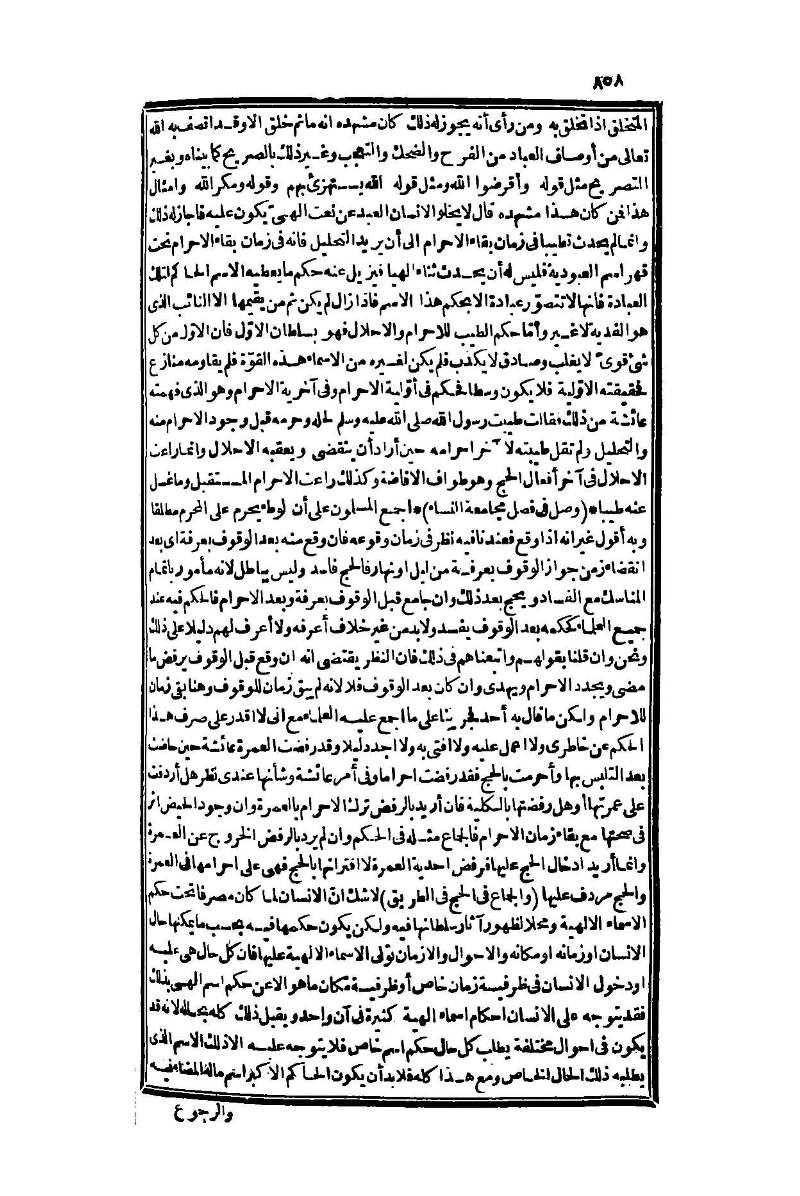 ٨٥٨
المتخلق اذا تخلق به ومن رأى أنه يجوز له ذلك كان مشهده انه ما تم خلق الا وقد اتصف به الله
تعالى من أوصاف العباد من الفرح والضحك والتعجب وغير ذلك بالصريح كما بيناه وبغير
التصريح مثل قوله وأقرضوا الله ومثل قوله الله يستهزئ بهم وقوله ومكر الله وامثال
هذا فمن كان هذا مشهده قال لا يخلو الانسان العبد عن نعت الهى يكون عليه فاجاز له ذلك
وانما لم يحدث تطيبا فى زمان بقاء الاحرام الى أن يريد التحليل فانه فى زمان بقاء الاحرام تحت
قهر اسم العبودية فليس له أن يحدث ثناء الهيا فيزيل عنه حكم ما يعطيه الاسم الحاكم لتلك
العبادة فانها لا تتصور عبادة الا بحكم هذا الاسم فاذا زال لم يكن ثم من يقيمها الا النائب الذى
هو الفدية لا غير وأما حكم الطيب للاحرام والاحلال فهو بسلطان الاول فان الاول من كل
شئ قوى لا يغلب وصادق لا يكذب فلم يكن لغيره من الاسماء هذه القوة فلم يقاومه منازع
لحقيقته الاولية فلا يكون وسطا فحكم فى أولية الاحرام وفى آخرية الاحرام وهو الذى فهمته
عائشة من ذلك فقالت طيبت رسول الله صلى الله عليه وسلم لحله وحرمه قبل وجود الاحرام منه
والتحليل ولم تقل طيبته لآخر احرامه حين أراد أن ينقضى ويعقبه الاحلال وانما راعت
الاحلال فى آخر أفعال الحج وهو طواف الافاضة وكذلك راعت الاحرام المستقبل وما غسل
عنه طيبا * (وصل فى فصل مجامعة النساء) * اجمع المسلمون على أن لوطء يحرم على المحرم مطلقا
وبه أقول غير انه اذا وقع فعندنا فيه نظر فى زمان وقوعه فان وقع منه بعد الوقوف بعرفة اى بعد
انقضاء زمن جواز الوقوف بعرفة من ليل او نهار فالحج فاسد وليس بباطل لانه مأمور باتمام
المناسك مع الفساد ويحج بعد ذلك وان جامع قبل الوقوف بعرفة وبعد الاحرام فالحكم فيه عند
جميع العلماء كحكمه بعد الوقوف يفسد ولا بد من غير خلاف أعرفه ولا أعرف لهم دليلا على ذلك
ونحن وان قلنا بقولهم واتبعناهم فى ذلك فان النظر يقتضى انه ان وقع قبل الوقوف يرفض ما
مضى ويجدد الاحرام ويهدى وان كان بعد الوقوف فلا لانه لم يبق زمان للوقوف وهنا بقى زمان
للاحرام ولكن ما قال به أحد فجرينا على ما اجمع عليه العلماء مع انى لا اقدر على صرف هذا
الحكم عن خاطرى ولا اعمل عليه ولا افتى به ولا اجد دليلا وقد رفضت العمرة عائشة حين حاضت
بعد التلبس بها وأحرمت بالحج فقد رفضت احراما وفى أمر عائشة وشأنها عندى نظر هل أردفت
على عمرتها أو هل رفضتها بالكلية فان أريد بالرفض ترك الاحرام بالعمرة وان وجود الحيض اثر
فى صحتها مع بقاء زمان الاحرام فالجماع مثله فى الحكم وان لم يرد بالرفض الخروج عن العمرة
وانما أريد ادخال الحج عليها فرفض احدية العمرة لا اقترانها بالحج فهى على احرامها فى العمرة
والحج مردف عليها (والجماع فى الحج فى الطريق) لا شك انّ الانسان لما كان مصرفا تحت حكم
الاسماء الالهية ومحلا لظهور آثار سلطانها فيه ولكن يكون حكمها فيه بحسب ما يمكنها حال
الانسان او زمانه او مكانه والاحوال والازمان تولى الاسماء الالهية عليها فان كل حال هى عليه
او دخول الانسان فى ظرفية زمان خاص أو ظرفية مكان ما هو الا عن حكم اسم الهى بذلك
فقد يتوجه على الانسان احكام اسماء الهية كثيرة فى آن واحد ويقبل ذلك كله بحاله لانه قد
يكون فى احوال مختلفة يطلب كل حال حكم اسم خاص فلا يتوجه عليه الا ذلك الاسم الذى
يطلبه ذلك الحال الخاص ومع هذا كله فلا بد أن يكون الحاكم الاكبر اسم ما له المضاء فيه
والرجوع